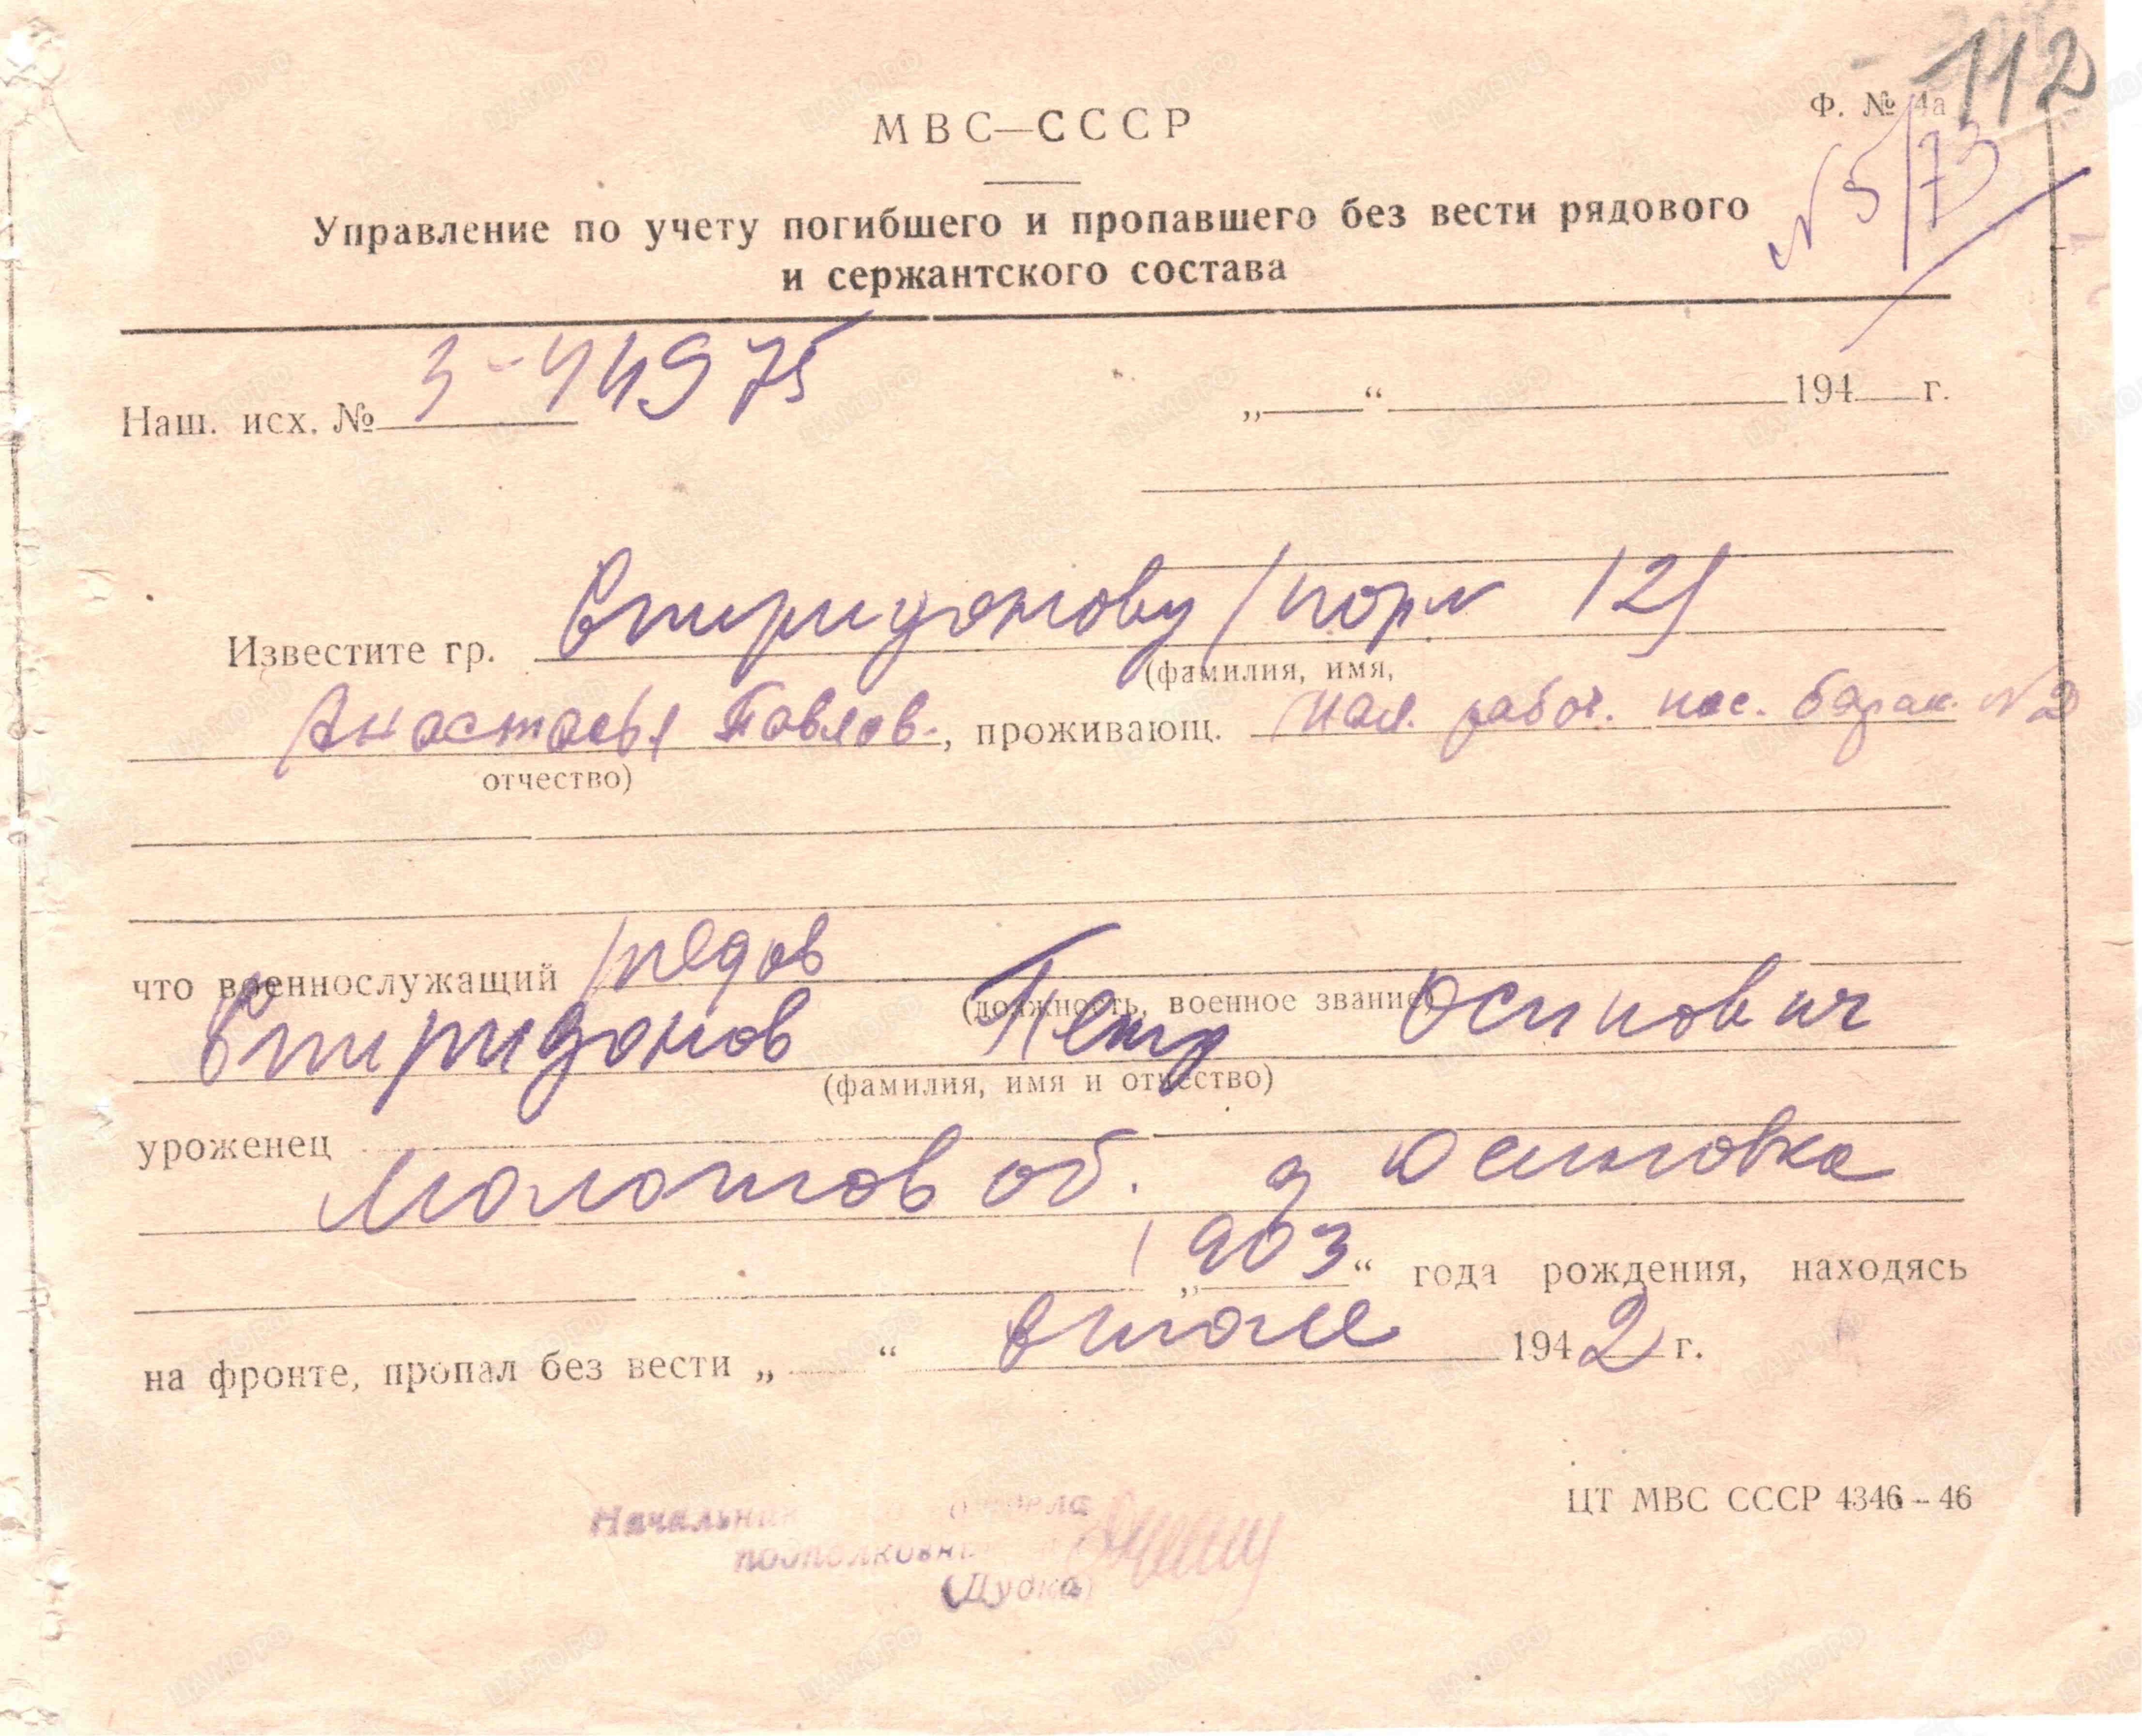 112
Ф. № 4а
МВС—СССР
N 5/73
Управление по учету погибшего и пропавшего без вести рядового
и сержантского состава
Наш. исх. № 3-44975
„ “ 194 г.
Известите гр. Спиридонову /порл 12/
(фамилия, имя,
Анастасья Павлов., проживающ. рабоч. пос. барак. N2
отчество)
что военнослужащий рядов
(должность, военное звание)
Спиридонов Петр Осипович
(фамилия, имя и отчество)
уроженец
Молотов об. д Осиновка
1 „903“ года рождения, находясь
на фронте, пропал без вести „ “ в мае 1942 г.
ЦТ МВС СССР 4346-46
Начальник отдела
подполковник
(Дудка)